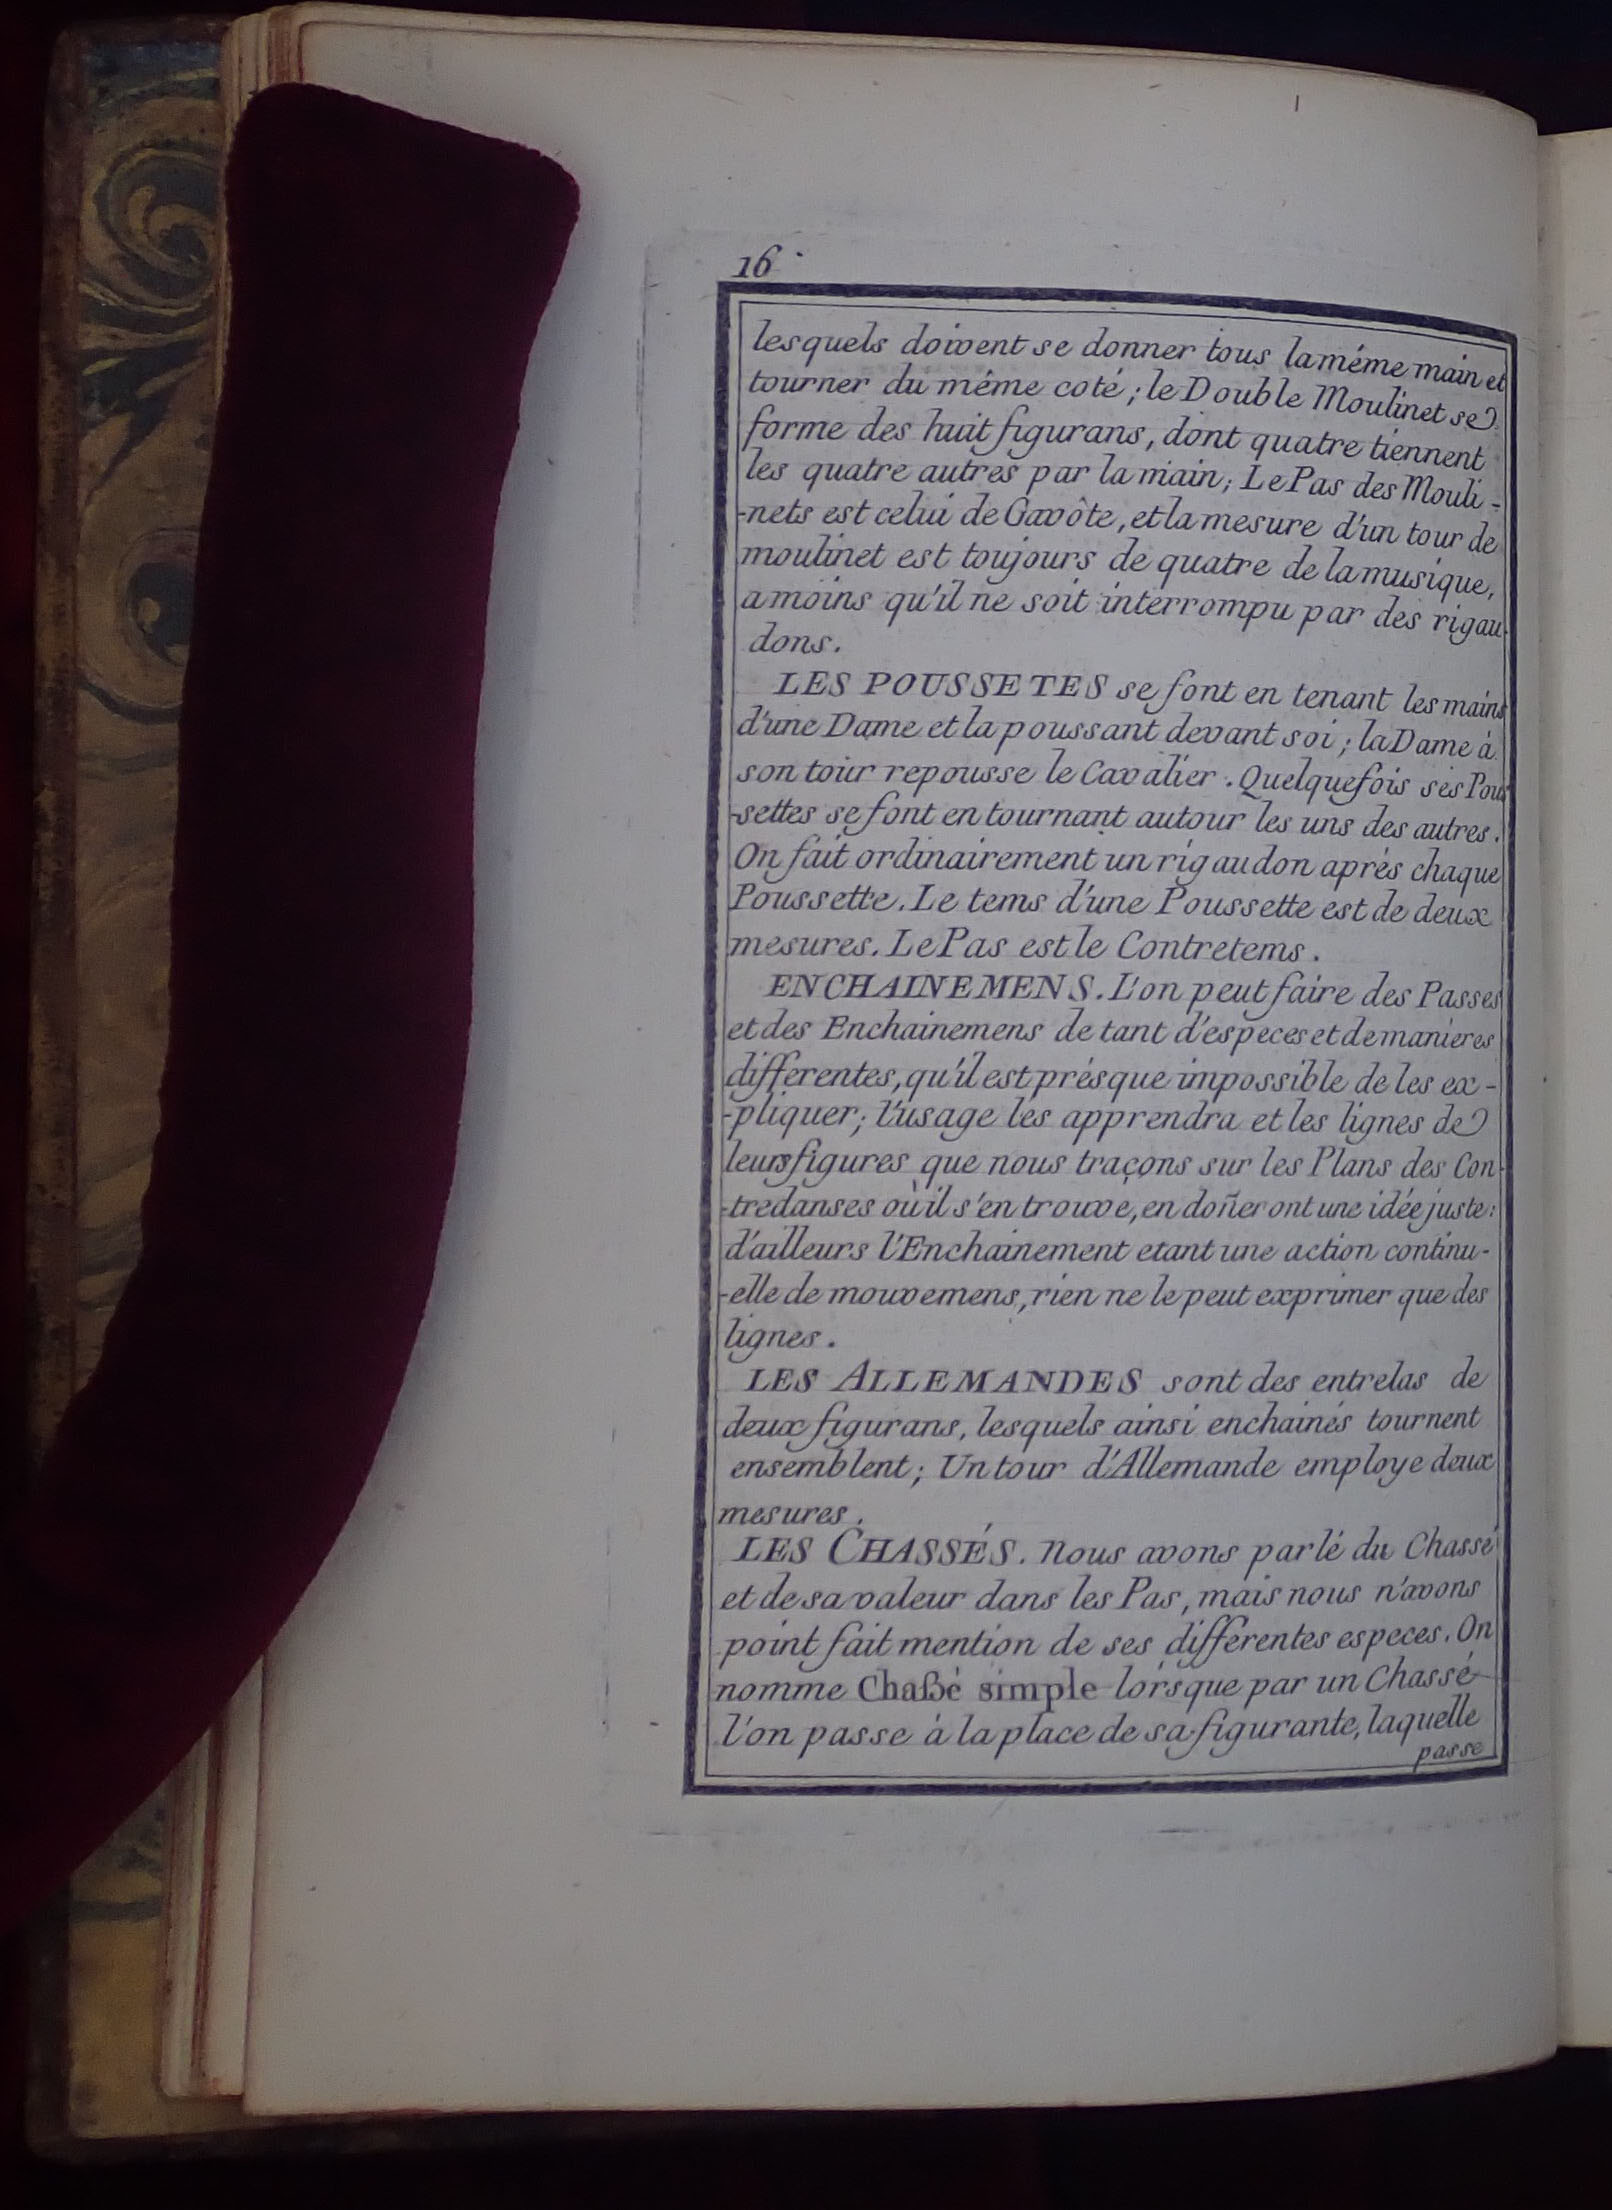 16
lesquels doivent se donner tous la méme main et
tourner du même coté; le Double Moulinet se
forme des huit figurans, dont quatre tiennent
les quatre autres par la main; Le Pas des Mouli-
-nets est celui de Gavôte, et la mesure d'un tour de
moulinet est toujours de quatre de la musique,
a moins qu'il ne soit interrompu par des rigau-
dons.
LES POUSSETES se font en tenant les mains
d'une Dame et la poussant devant soi; la Dame à
son tour repousse le Cavalier. Quelquefois ses Pous
-settes se font en tournant autour les uns des autres.
On fait ordinairement un rigaudon aprés chaque
Poussette. Le tems d'une Poussette est de deux
mesures. Le Pas est le Contretems.
ENCHAINEMENS. L'on peut faire des Passes
et des Enchainemens de tant d'especes et de manieres
differentes, qu'il est présque impossible de les ex-
-pliquer; l'usage les apprendra et les lignes de
leurs figures que nous traçons sur les Plans des Con-
-tredanses où il s'en trouve, en doñeront une idée juste:
d'ailleurs l'Enchainement etant une action continu-
-elle de mouvemens, rien ne le peut exprimer que des
lignes.
LES ALLEMANDES sont des entrelas de
deux figurans, lesquels ainsi enchainés tournent
ensemblent; Un tour d'Allemande employe deux
mesures.
LES CHASSÉS. Nous avons parlé du Chassé
et de sa valeur dans les Pas, mais nous n'avons
point fait mention de ses differentes especes. On
nomme Chaßé simple lórsque par un Chassé
l'on passe à la place de sa figurante, laquelle
passe